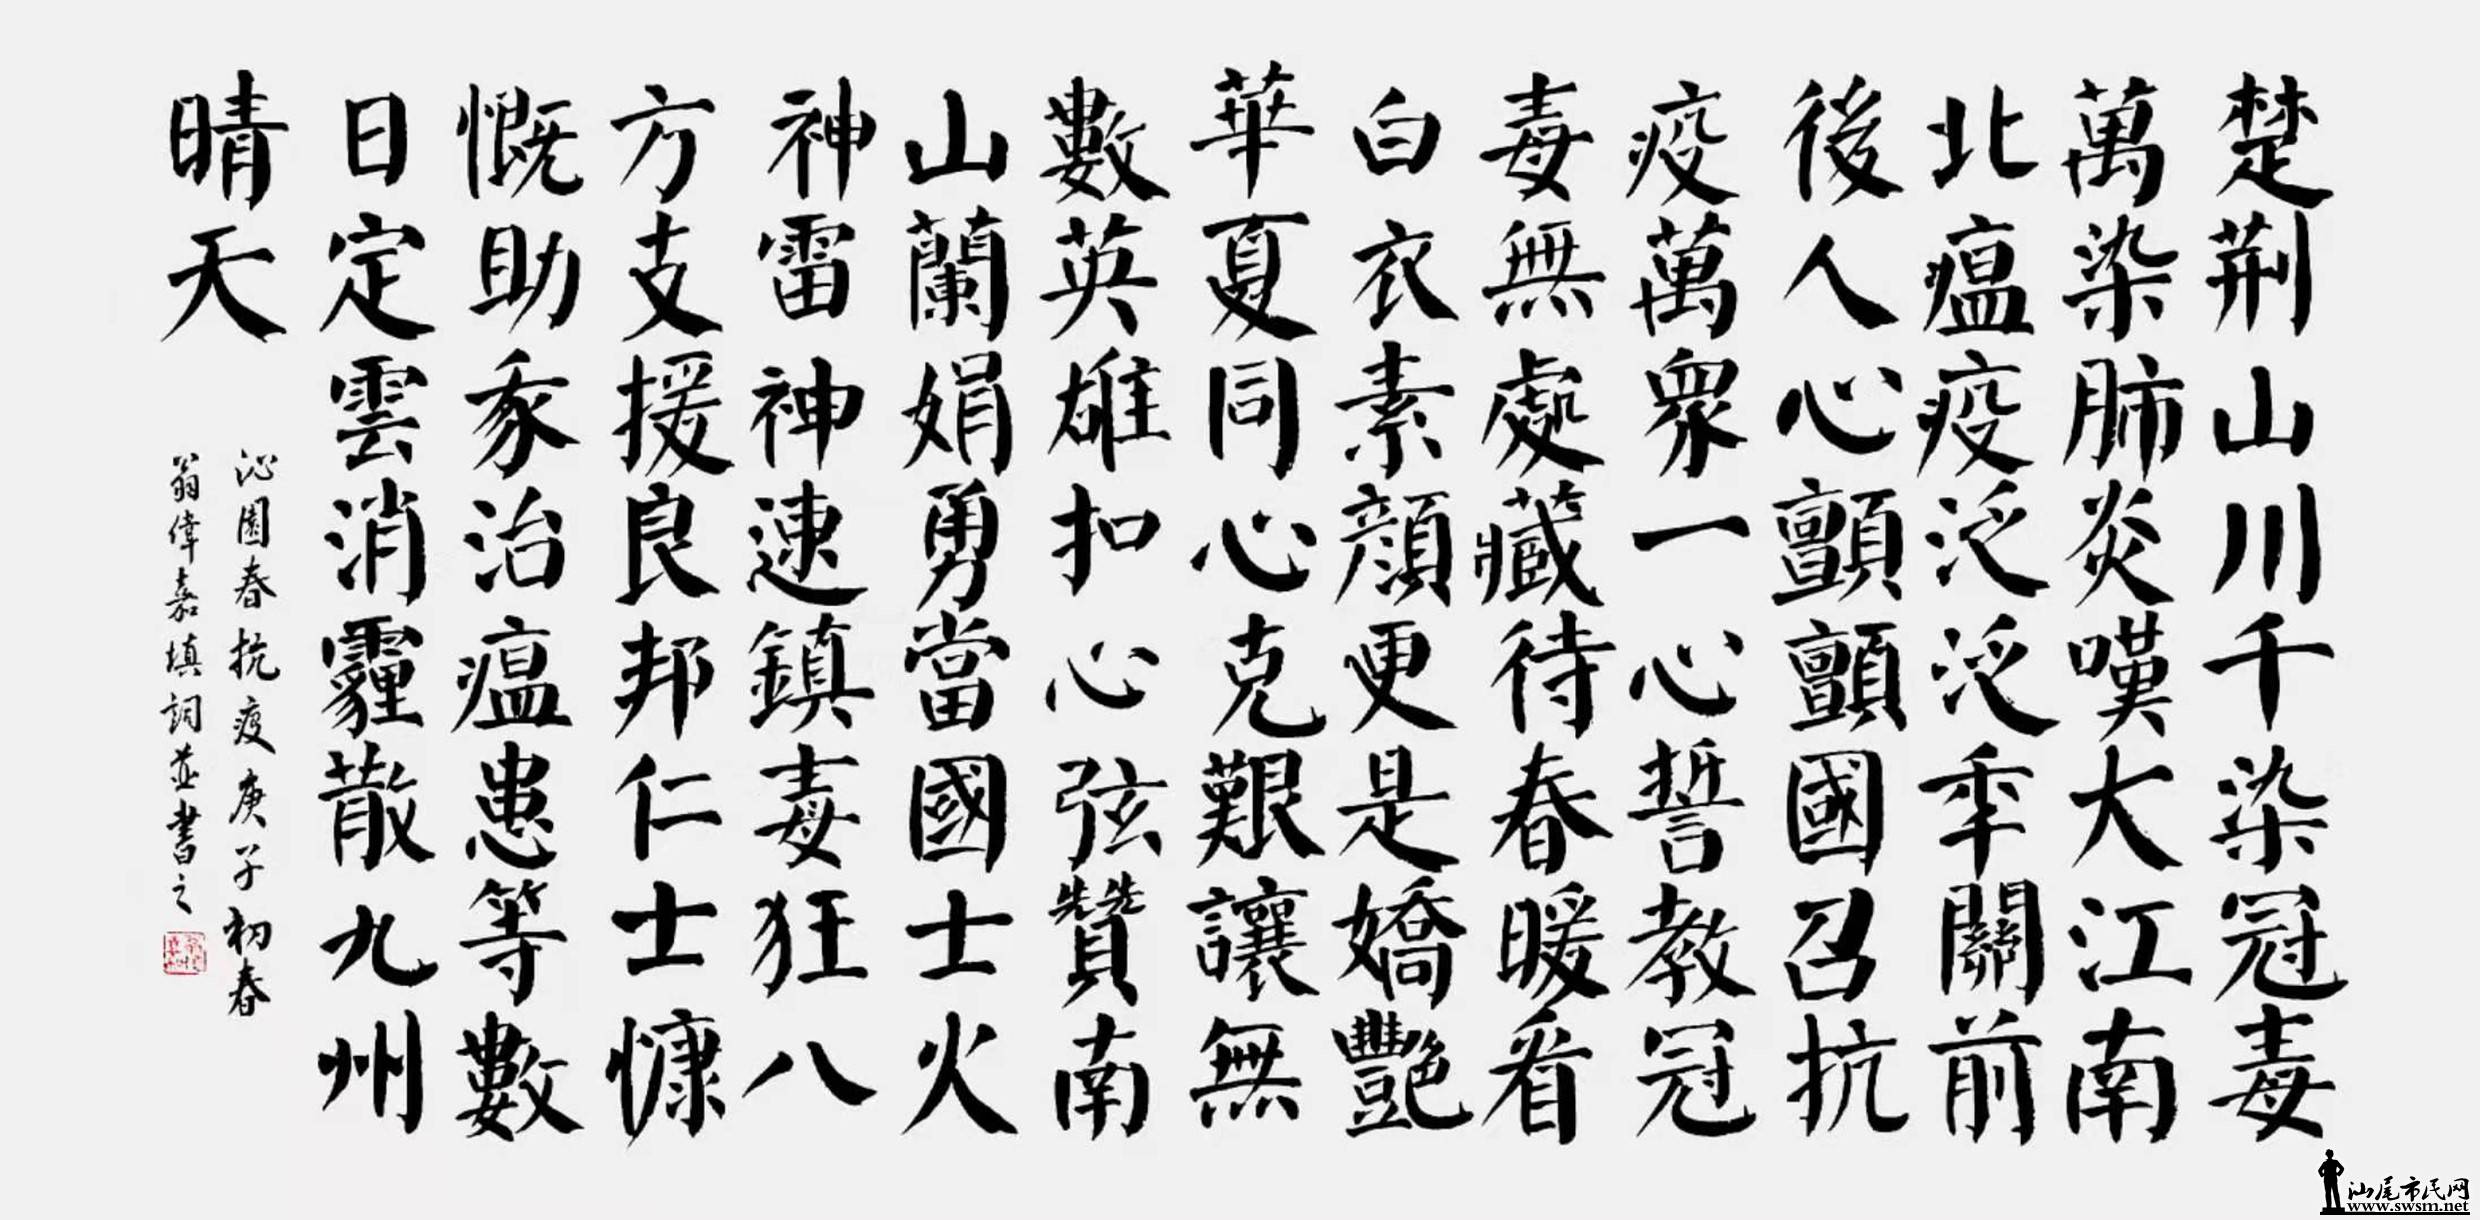 楚荆山川千染冠毒
萬染肺炎嘆大江南
北瘟疫泛泛年關前
後人心顫顫國召抗
疫萬眾一心誓教冠
毒無處藏待春暖看
白衣素顔更是嬌艷
華夏同心克艱讓無
數英雄扣心弦贊南
山蘭娟勇當國士火
神雷神速鎮毒狂八
方支援良邦仁士慷
慨助家治瘟患等數
日定雲消霾散九州
晴天
沁園春抗疫庚子初春
翁偉嘉填詞並書之
汕尾市民网
www.swsm.net